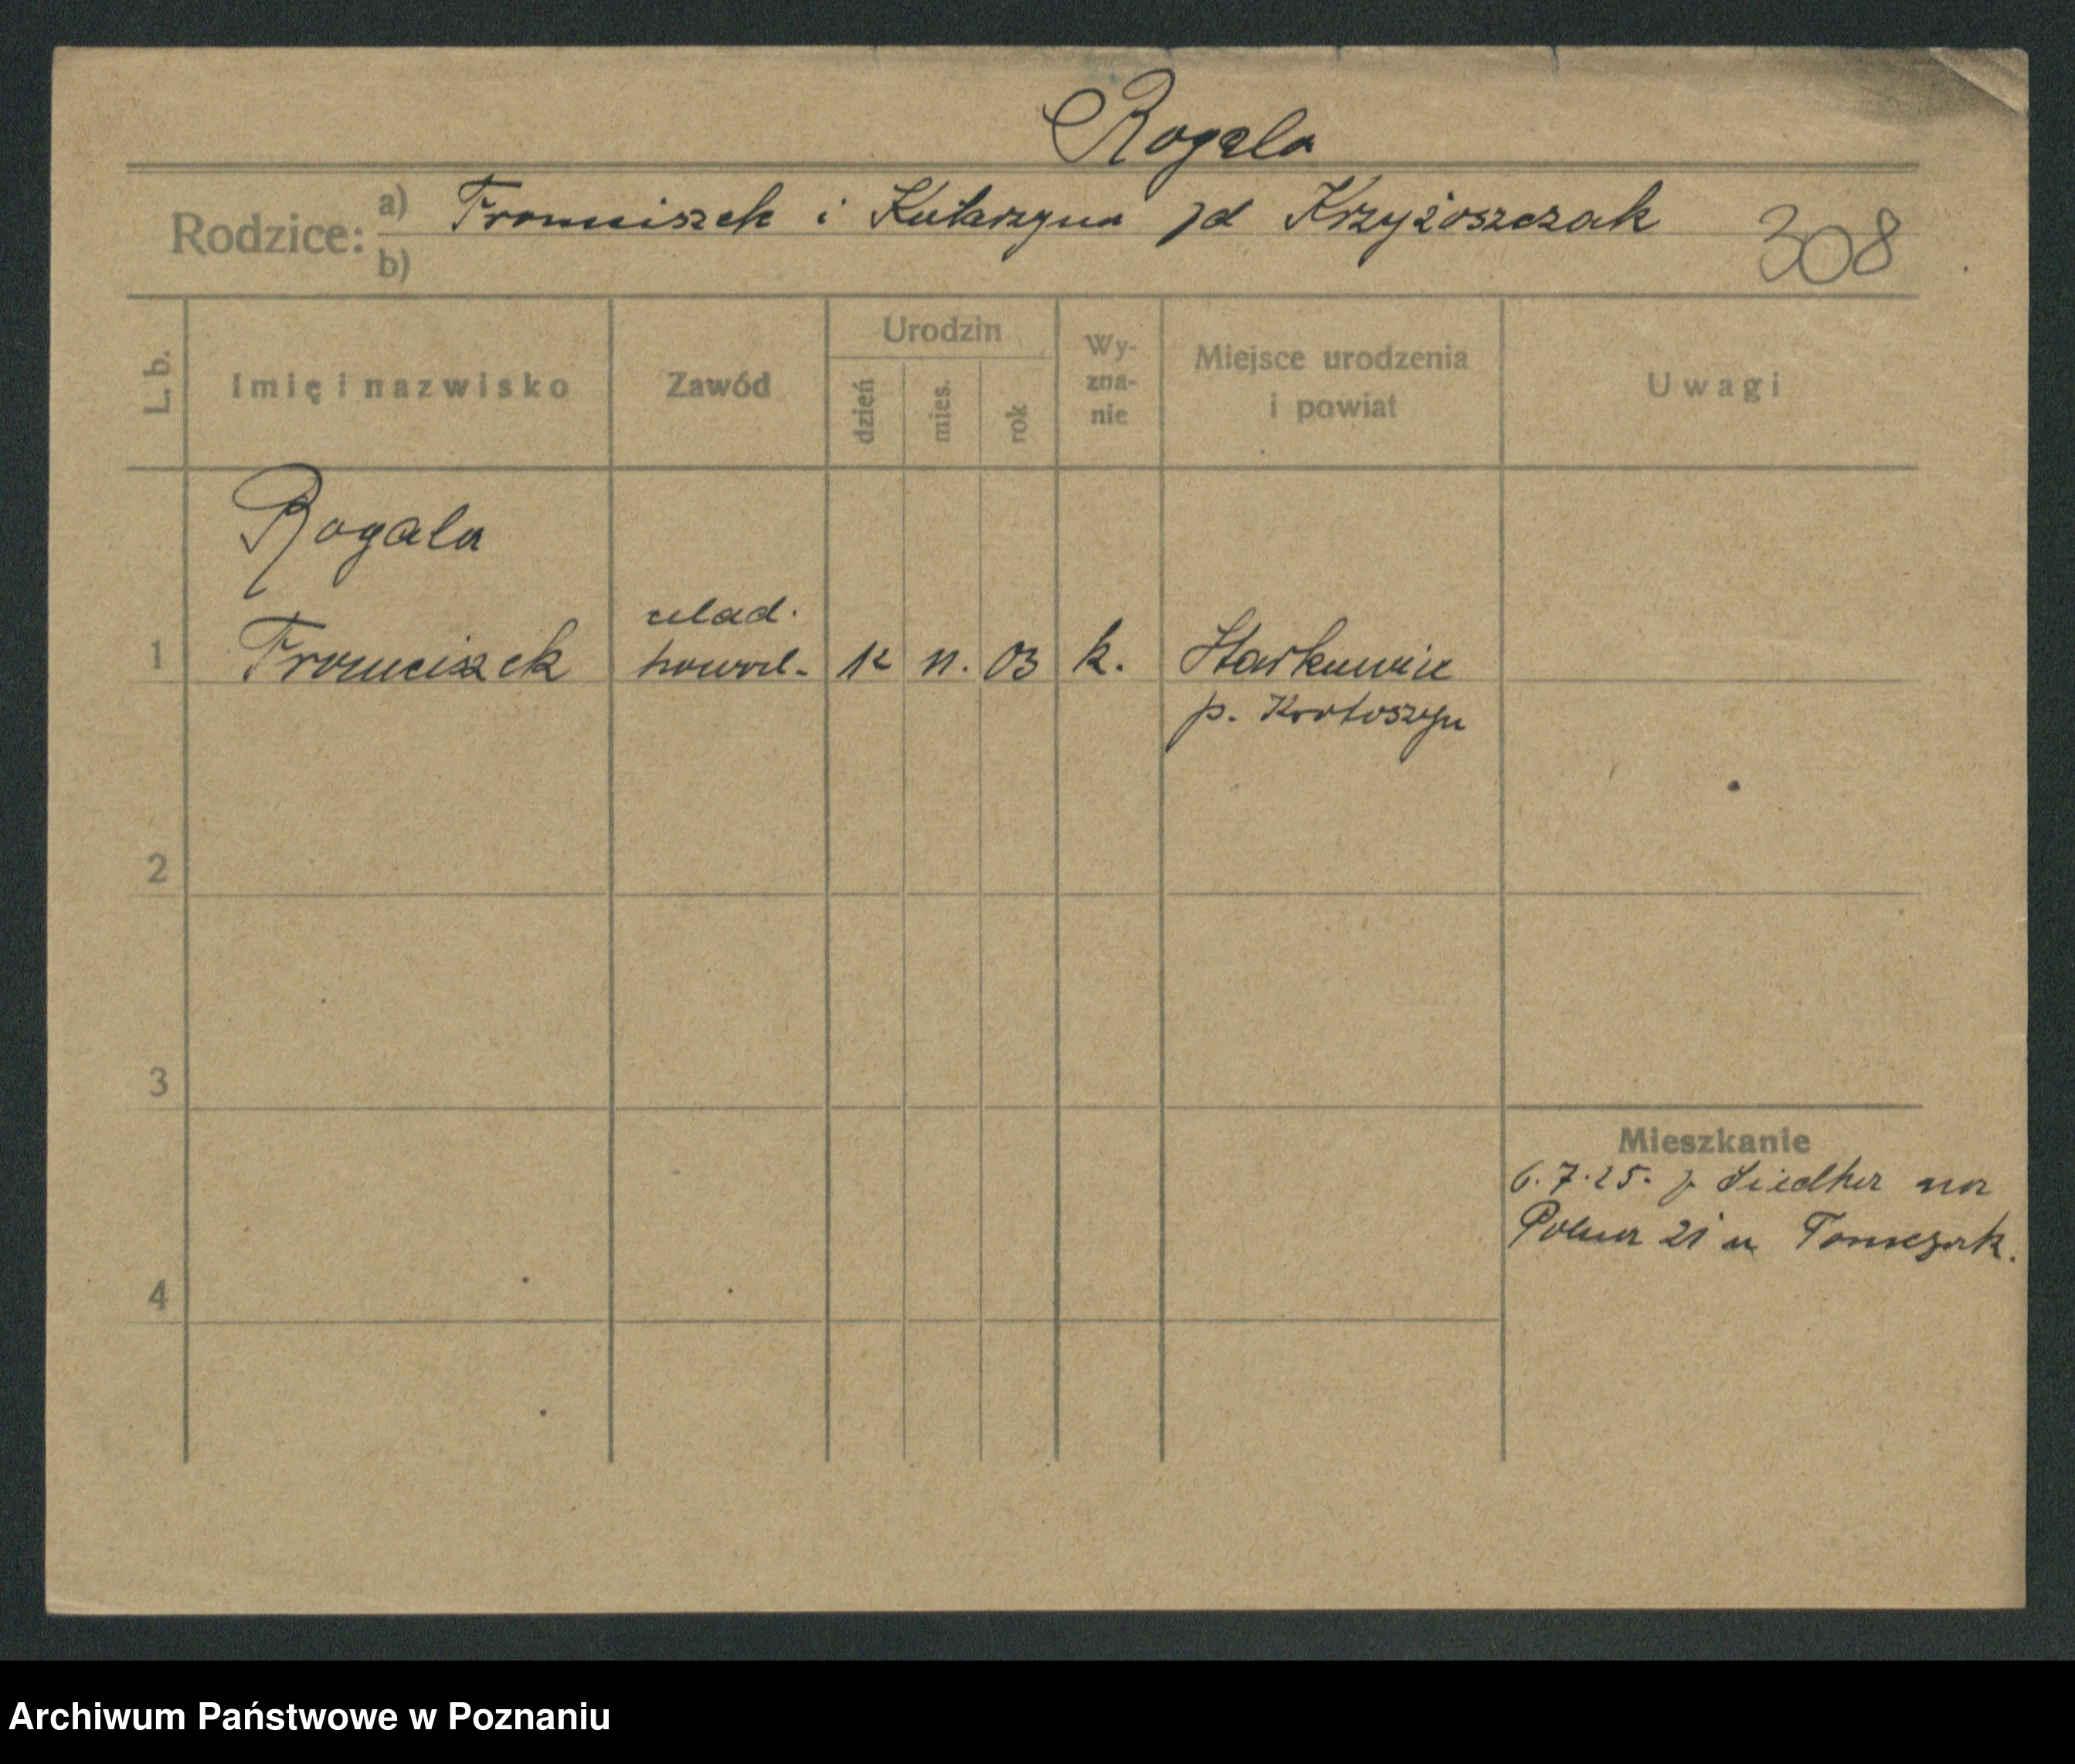 Rogala
Rodzice: a) Franciszek i Katarzyna zd Krzyżoszczak 308
b)
L. b. Imię i nazwisko Zawód Urodzin dzień mies. rok Wy-zna-nie Miejsce urodzenia i powiat Uwagi
Rogala
czelad.
1 Franciszek kowal. 12 11. 03 k.
p. Krotoszyn
2
3
Mieszkanie
6.7.25. z na
Polna 21 u Tomczak.
4
Archiwum Państwowe w Poznaniu